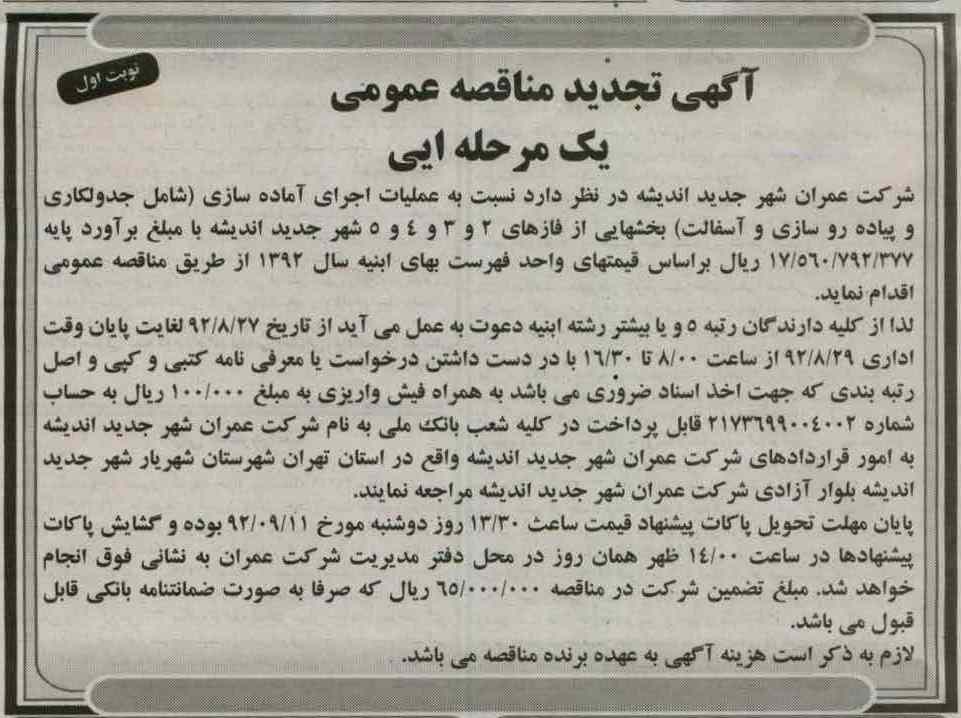 نوبت اول
آگهی تجدید مناقصه عمومی
یک مرحله ایی
شرکت عمران شهر جدید اندیشه در نظر دارد نسبت به عملیات اجرای آماده سازی (شامل جدولکاری
و پیاده رو سازی و آسفالت) بخشهایی از فازهای ۲ و ۳ و ٤ و ٥ شهر جدید اندیشه با مبلغ برآورد پایه
۱۷/٥٦۰/۷۹۲/۳۷۷ ریال براساس قیمتهای واحد فهرست بهای ابنیه سال ۱۳۹۲ از طریق مناقصه عمومی
اقدام نماید.
لذا از کلیه دارندگان رتبه ٥ و یا بیشتر رشته ابنیه دعوت به عمل می آید از تاریخ ۹۲/۸/۲۷ لغایت پایان وقت
اداری ۹۲/۸/۲۹ از ساعت ۸/۰۰ تا ۱٦/۳۰ با در دست داشتن درخواست یا معرفی نامه کتبی و کپی و اصل
رتبه بندی که جهت اخذ اسناد ضروری می باشد به همراه فیش واریزی به مبلغ ۱۰۰/۰۰۰ ریال به حساب
شماره ۲۱۷۳٦۹۹۰۰٤۰۰۲ قابل پرداخت در کلیه شعب بانک ملی به نام شرکت عمران شهر جدید اندیشه
به امور قراردادهای شرکت عمران شهر جدید اندیشه واقع در استان تهران شهرستان شهریار شهر جدید
اندیشه بلوار آزادی شرکت عمران شهر جدید اندیشه مراجعه نمایند.
پایان مهلت تحویل پاکات پیشنهاد قیمت ساعت ۱۳/۳۰ روز دوشنبه مورخ ۹۲/۰۹/۱۱ بوده و گشایش پاکات
پیشنهادها در ساعت ۱٤/۰۰ ظهر همان روز در محل دفتر مدیریت شرکت عمران به نشانی فوق انجام
خواهد شد. مبلغ تضمین شرکت در مناقصه ٦٥/۰۰۰/۰۰۰ ریال که صرفا به صورت ضمانتنامه بانکی قابل
قبول می باشد.
لازم به ذکر است هزینه آگهی به عهده برنده مناقصه می باشد.